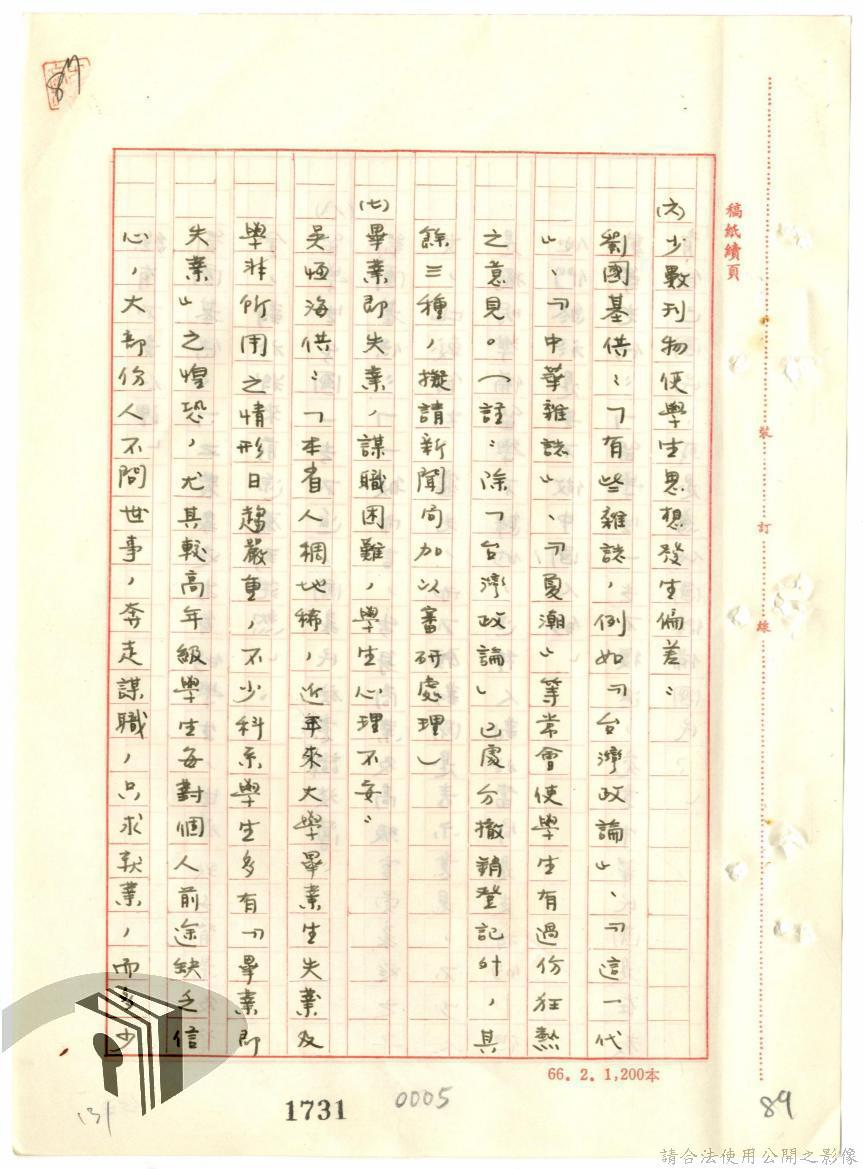 稿紙續頁
裝
訂
線
(六)少數刊物使學生思想發生偏差：
劉國基供：「有些雜誌，例如『台灣政論』、『這一代
』、『中華雜誌』、『夏潮』等常會使學生有過份狂熱
之意見。(註：除「台灣政論」已處分撤銷登記外，其
餘三種，擬請新聞局加以審研處理)
(七)畢業即失業，謀職困難，學生心理不安：
吳恆海供：「本省人稠地稀，近年來大學畢業生失業及
學非所用之情形日趨嚴重，不少科系學生多有『畢業即
失業』之惶恐，尤其較高年級學生每對個人前途缺乏信
心，大部份人不問世事，奔走謀職，只求就業，而多少
66. 2. 1,200本
1731
0005
89
131
87
請合法使用公開之影像